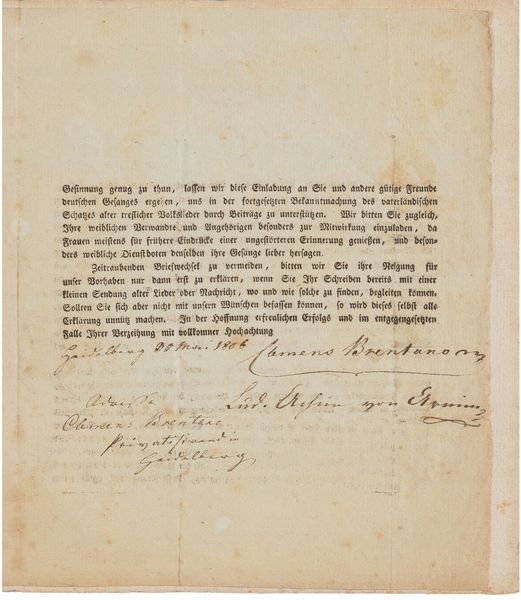 Gesinnung genug zu thun, lassen wir diese Einladung an Sie und andere gütige Freunde
deutschen Gesanges ergehen, uns in der fortgesetzten Bekanntmachung des vaterländischen
Schatzes alter treflicher Volkslieder durch Beiträge zu unterstützen. Wir bitten Sie zugleich,
Ihre weiblichen Verwandte und Angehörigen besonders zur Mitwirkung einzuladen, da
Frauen meistens für frühere Eindrücke einer ungestörteren Erinnerung genießen, und beson-
ders weibliche Dienstboten denselben ihre Gesänge lieber hersagen.
Zeitraubenden Briefwechsel zu vermeiden, bitten wir Sie ihre Neigung für
unser Vorhaben nur dann erst zu erklären, wenn Sie Ihr Schreiben bereits mit einer
kleinen Sendung alter Lieder oder Nachricht, wo und wie solche zu finden, begleiten können.
Sollten Sie sich aber nicht mit unsern Wünschen befassen können, so wird dieses selbst alle
Erklärung unnütz machen. In der Hoffnung erfreulichen Erfolgs und im entgegengesetzten
Falle Ihrer Verzeihung mit vollkommner Hochachtung
Heidelberg Mai 1806 Clemens Brentano
Lud. Achim von Arnim
Adresse
Clemens Brentano
in
Heidelberg